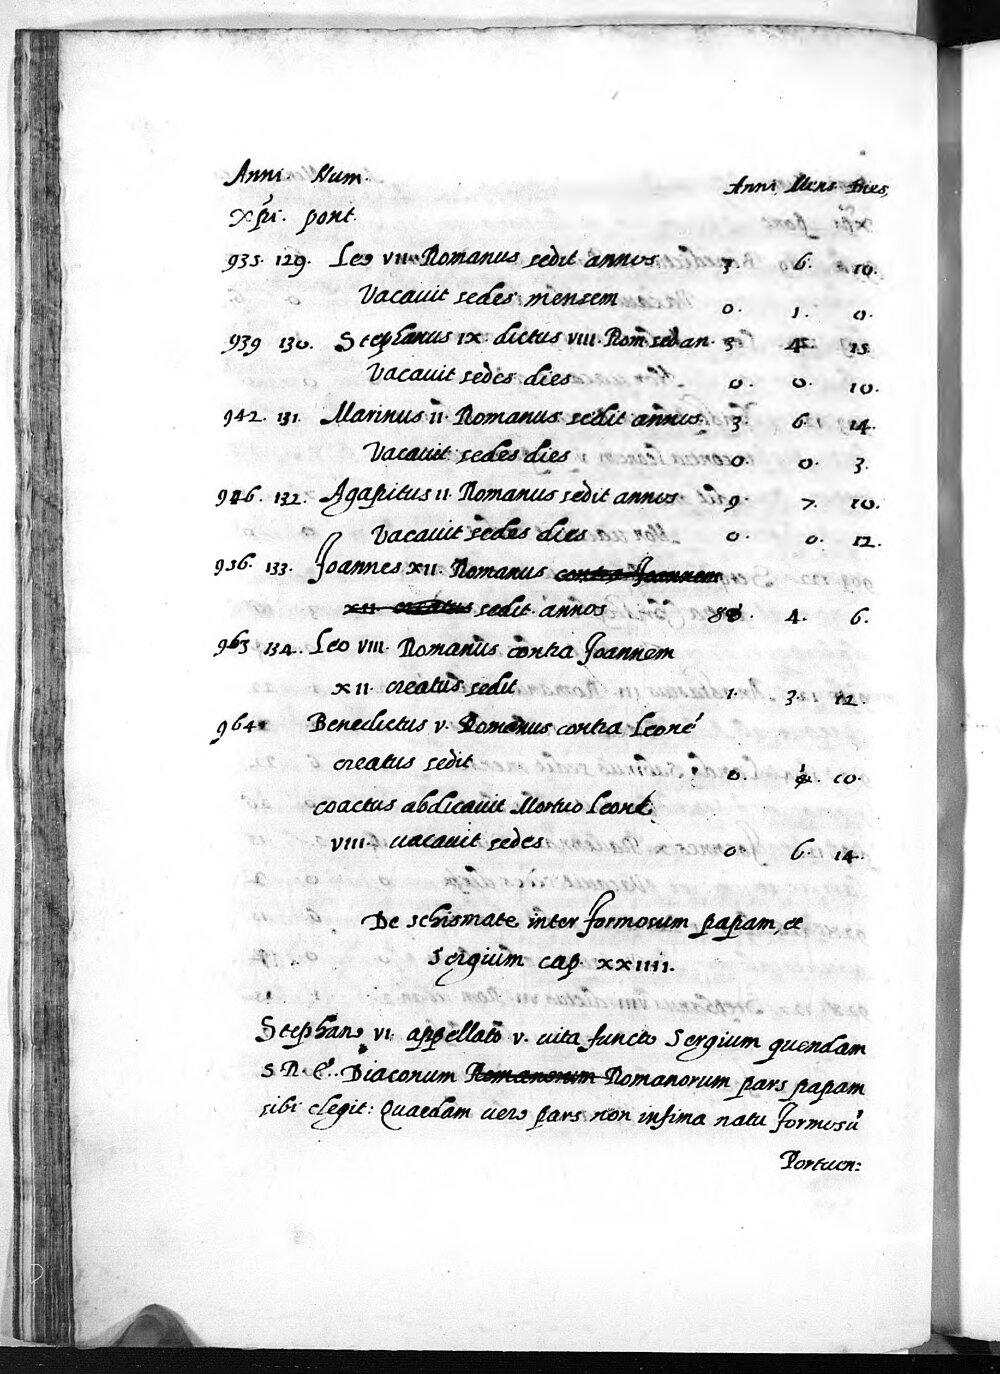 Anni. Num. Anni Mens Dies
Xp̃i. pont.
935. 129. Leo VII Romanus sedit annos 3 6. 10.
Vacauit sedes mensem 0. 1. 0.
939 130. Stephanus IX dictus VIII Rom sed an. 3 4 15
Vacauit sedes dies 0. 0. 10.
942. 131. Marinus II. Romanus sedit annos. 3. 6. 14.
Vacauit sedes dies 0. 0. 3.
946. 132. Agapitus II. Romanus sedit annos 9. 7. 10.
Vacauit sedes dies 0. 0. 12.
956. 133. Joannes XII. Romanus contra Joannem
XII creatus sedit annos 8. 4. 6.
963 134. Leo VIII. Romanus contra Joannem
XII. creatus sedit 1. 3. 12.
964. Benedictus V. Romanus contra Leonē
creatus sedit 0. 10.
coactus abdicauit Mortuo Leone
VIII. uacauit sedes 0 6. 14.
De schismate inter formosum papam, et
Sergium cap. XXIIII.
Stephano VI appellato V. uita functo Sergium quendam
S. R. E. Diaconum Romanorum Romanorum pars papam
sibi elegit: Quaedam uero pars non infima natu formosū
Portuen: